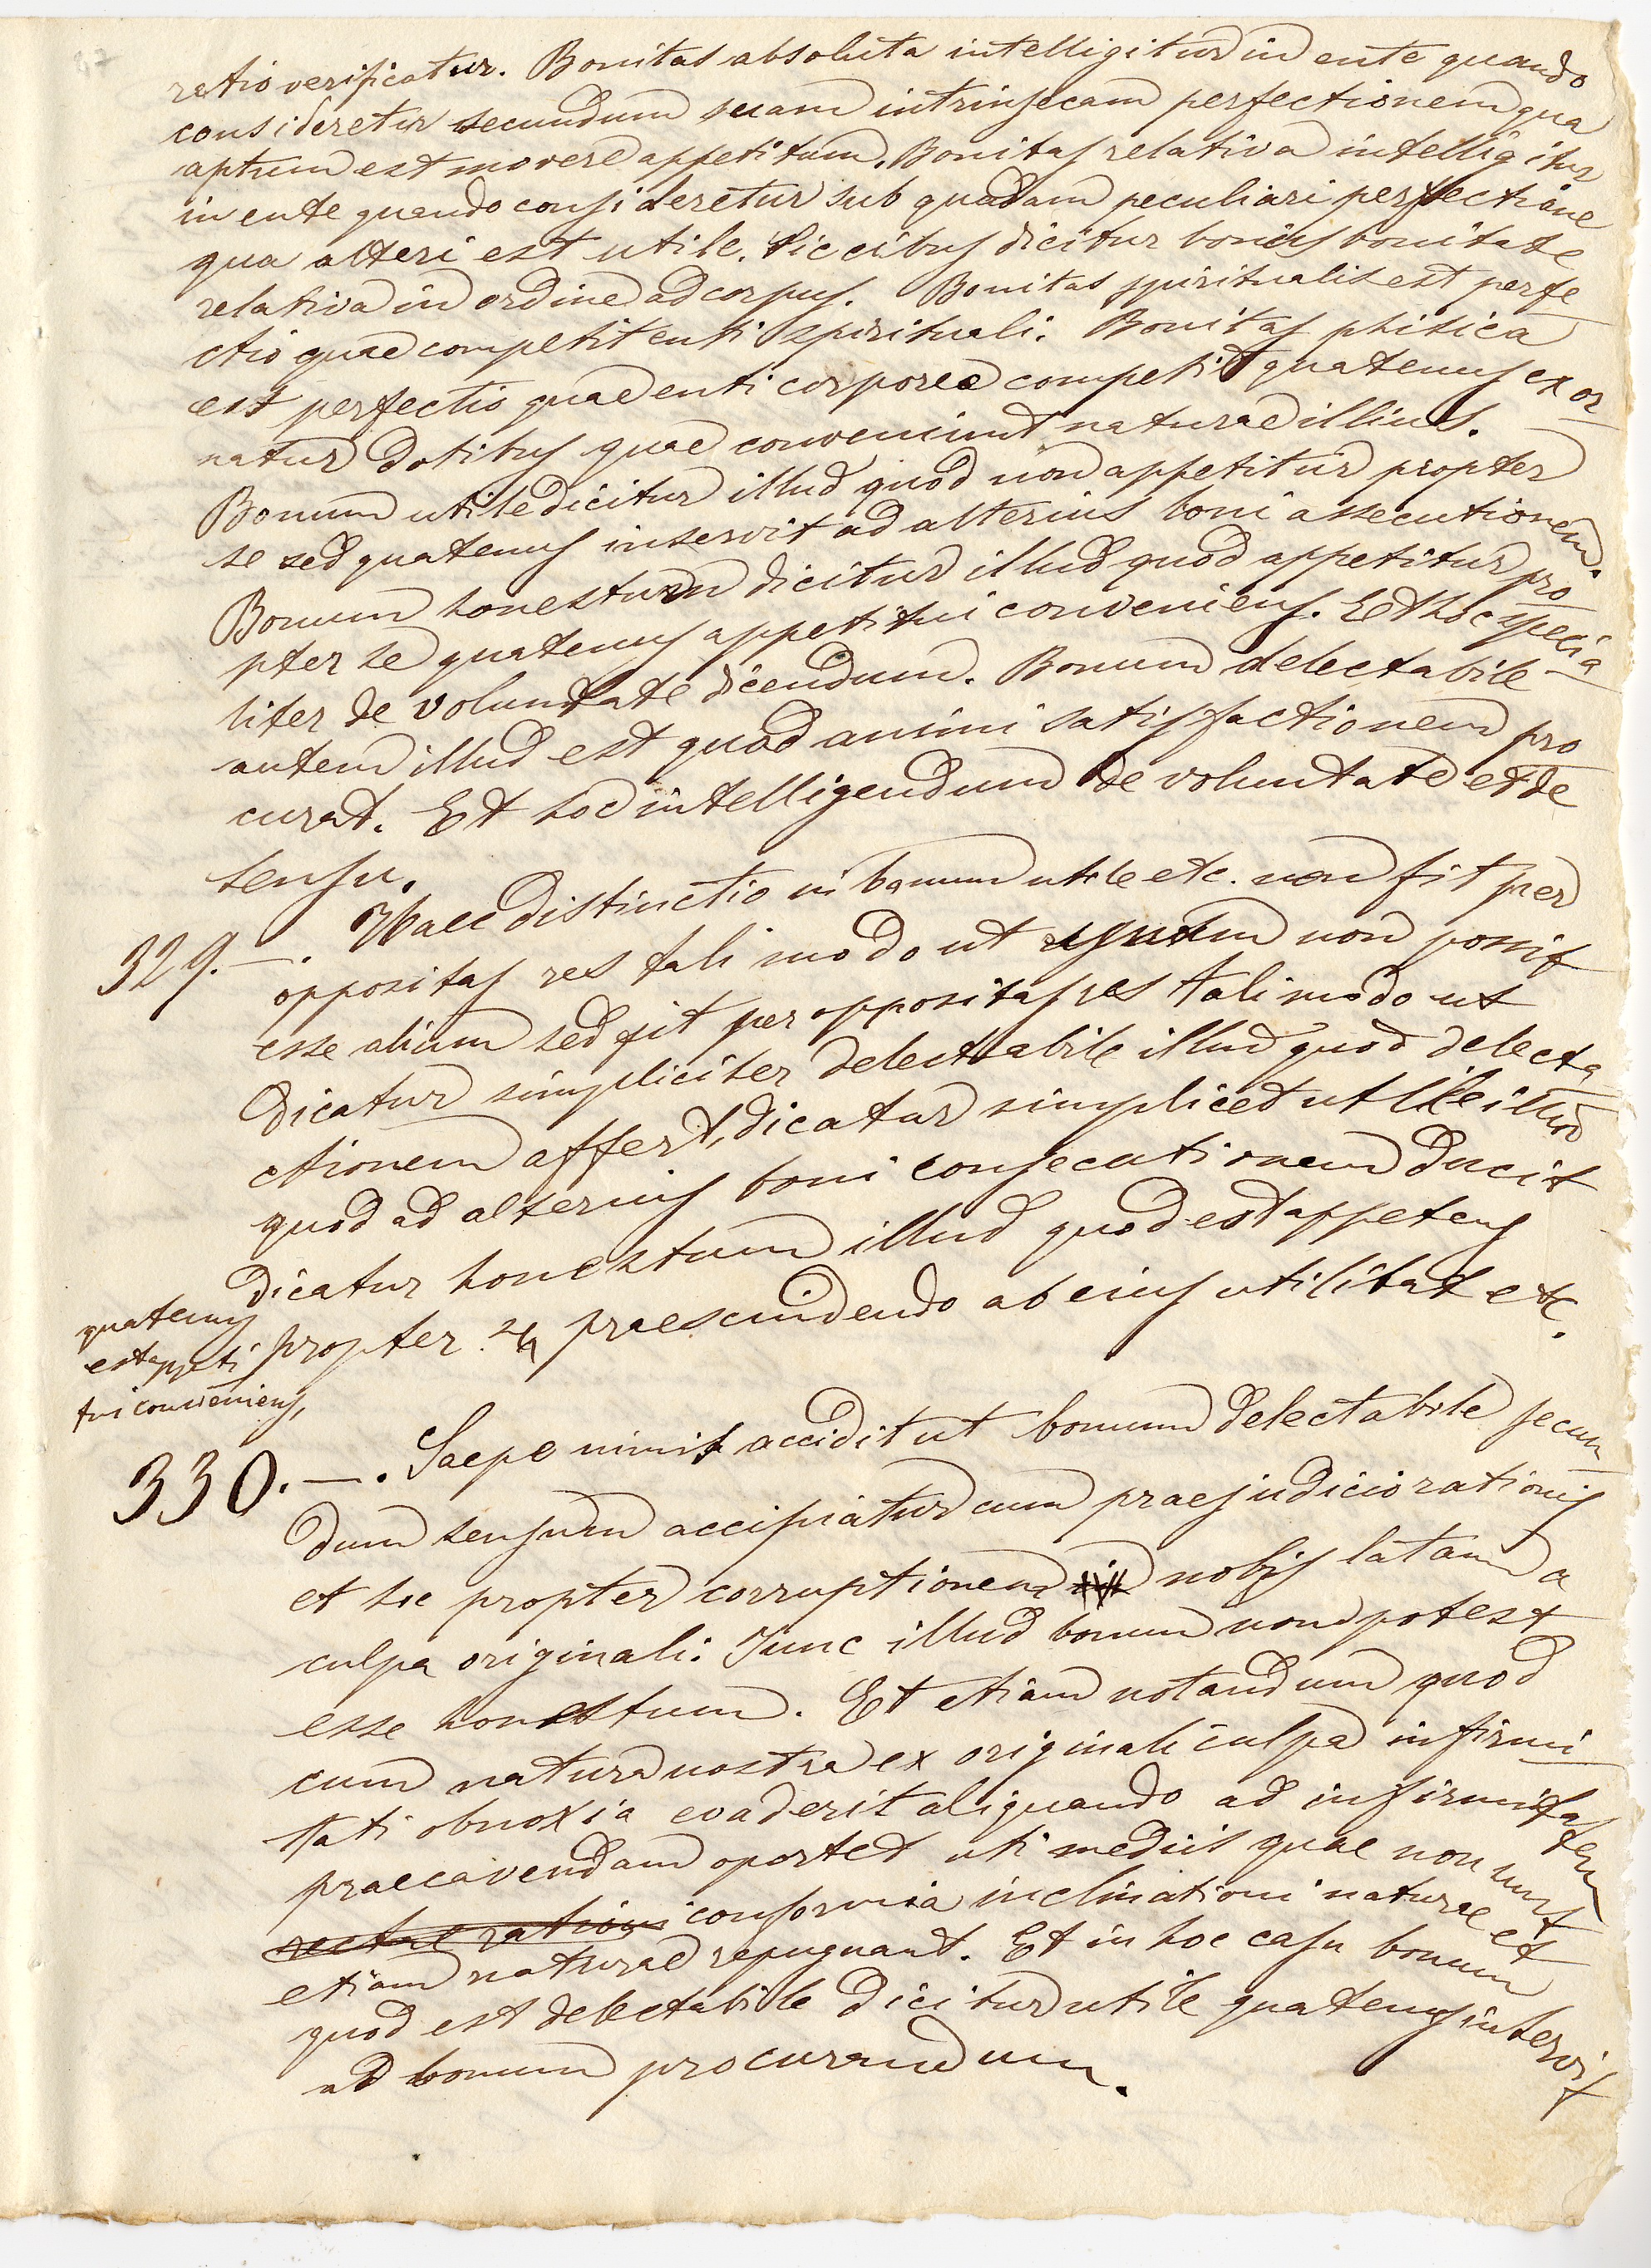 ratio verificatur. Bonitas absoluta intelligitur in ente quando
consideretur secundum suam intrinsecam perfectionem qua
aptum est movere appetitum. Bonitas relativa intelligitur
in ente quando consideretur sub quadam peculiari perfectione
qua alteri est utile. Sic cibus dicitur bonus bonitate
relativa in ordine ad corpus. Bonitas spiritualis est perfe
ctio quae competit enti spirituali. Bonitas phisica
est perfectio quae enti corporeo competit quatenus exor
natur dotibus quae conveniunt naturae illius.
Bonum utile dicitur illud quod non appetitur propter
se sed quatenus inservit ad alterius boni assecutionem.
Bonum honestum dicitur illud quod appetitur pro
pter se quatenus appetitui conveniens. Et hoc specia
liter de voluntate dicendum. Bonum delectabile
autem illud est quod animi satisfactionem pro
curat. Et hoc intelligendum de voluntate et de
sensu.
329. —. Haec distinctio in bonum utile etc. non fit per
oppositas res tali modo ut non possit
esse alium sed fit per oppositas res tali modo ut
dicatur simpliciter delectabile illud quod delecta
ctionem affert, dicatur simplicet utile illud
quod ad alterius boni consecutionem ducit
dicatur honestum illud quod est appetens
quatenus
est appeti
tui conveniens,
propter se praescindendo ab eius utilitat etc.
330. —. Saepe nimis accidit ut bonum delectabile secun
dum sensum accipiatur cum praejudicio rationis
et hic propter corruptionem nobis latam a
culpa originali. Tunc illud bonum non potest
esse honestum. Et etiam notandum quod
cum natura nostra ex originali culpa infirmi
tati obnoxia evaderit aliquando ad infirmitatem
praecavendam oportet uti mediis quae non sunt
rectae rationi conformia inclinationi naturae et
etiam naturae repugnant. Et in hoc casu bonum
quod est delectabile dicitur utile quatenus inservit
ad bonum procurandum.